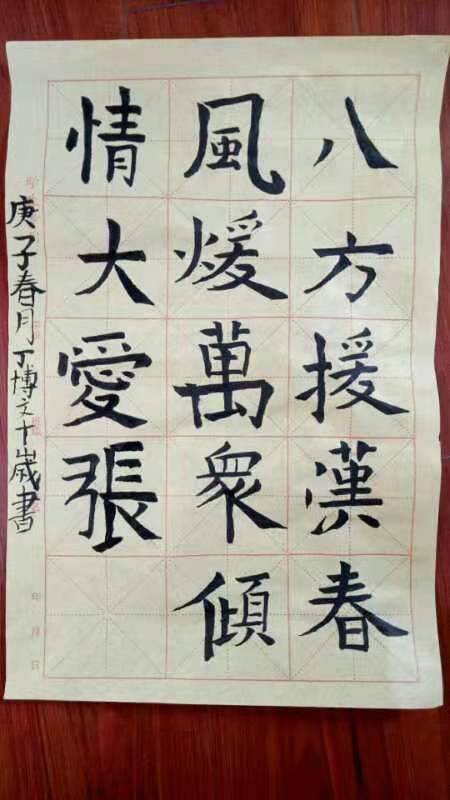 八方援漢春
風煖萬衆傾
情大愛張
庚子春月丁博文十歲書